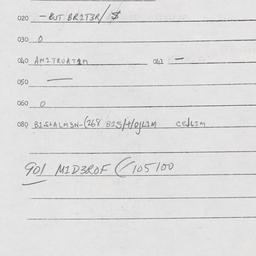 020 - BUT BRIT3R/ $
030 0
040 AMITRUATIM 041 -
050 —
060 0
080 BISTALM3N-(268 BIS/4/0/LIM CE/LIM
901 MID3ROF (/105100